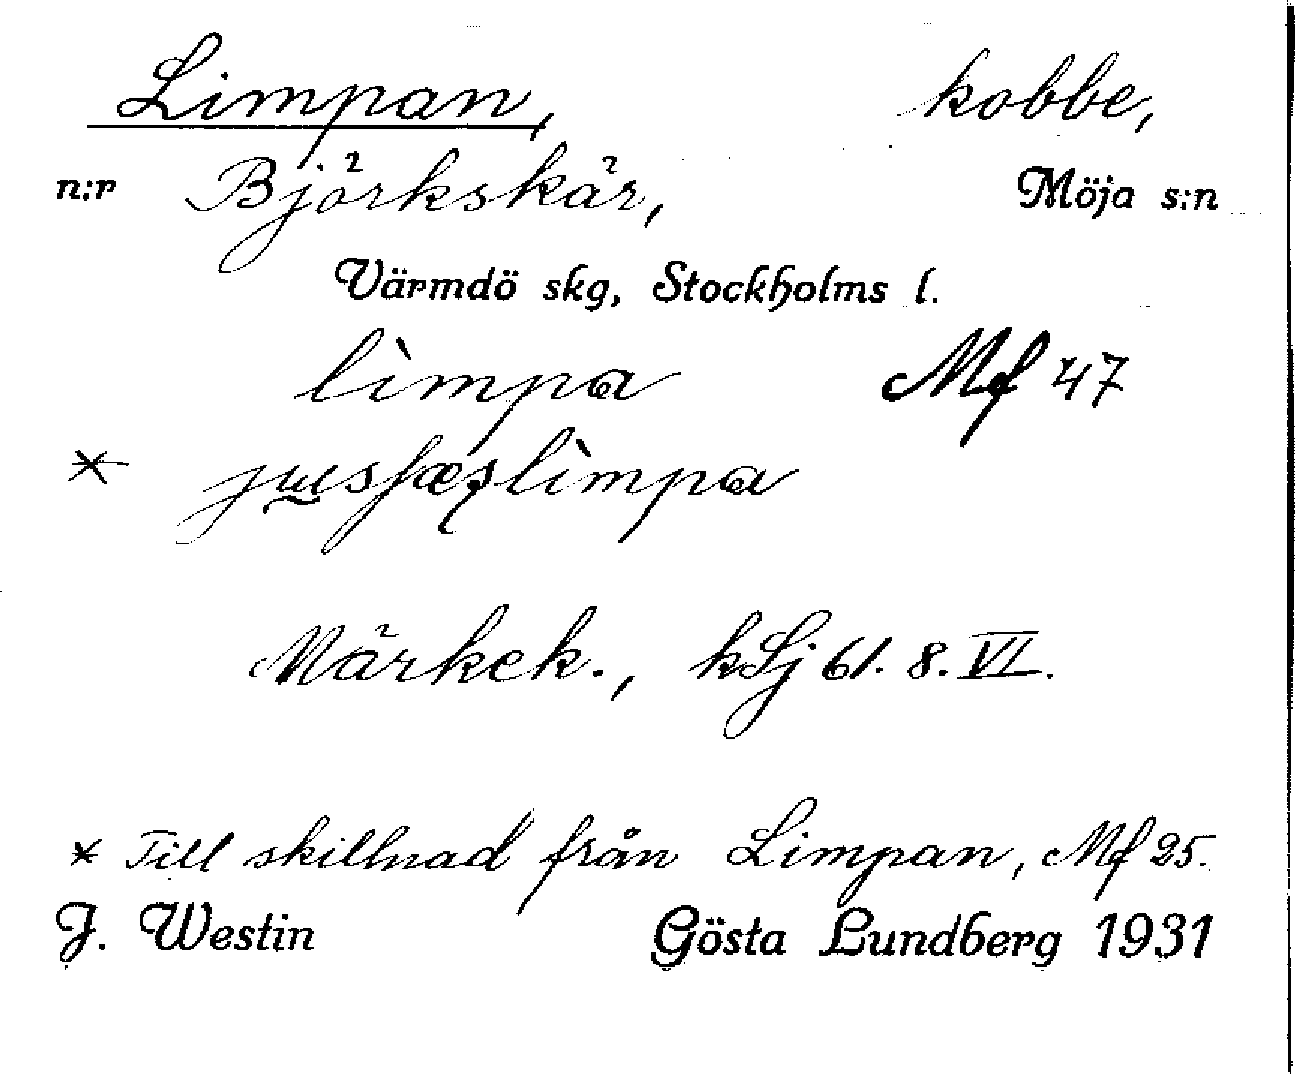 Limpan, kobbe,
n:r Björkskär, Möja s:n
Värmdö skg, Stockholms l.
lìmpa Mf 47
*
Märkek., kLj 61. 8. VI.
* Till skillnad från Limpan, Mf 25.
J. Westin Gösta Lundberg 1931